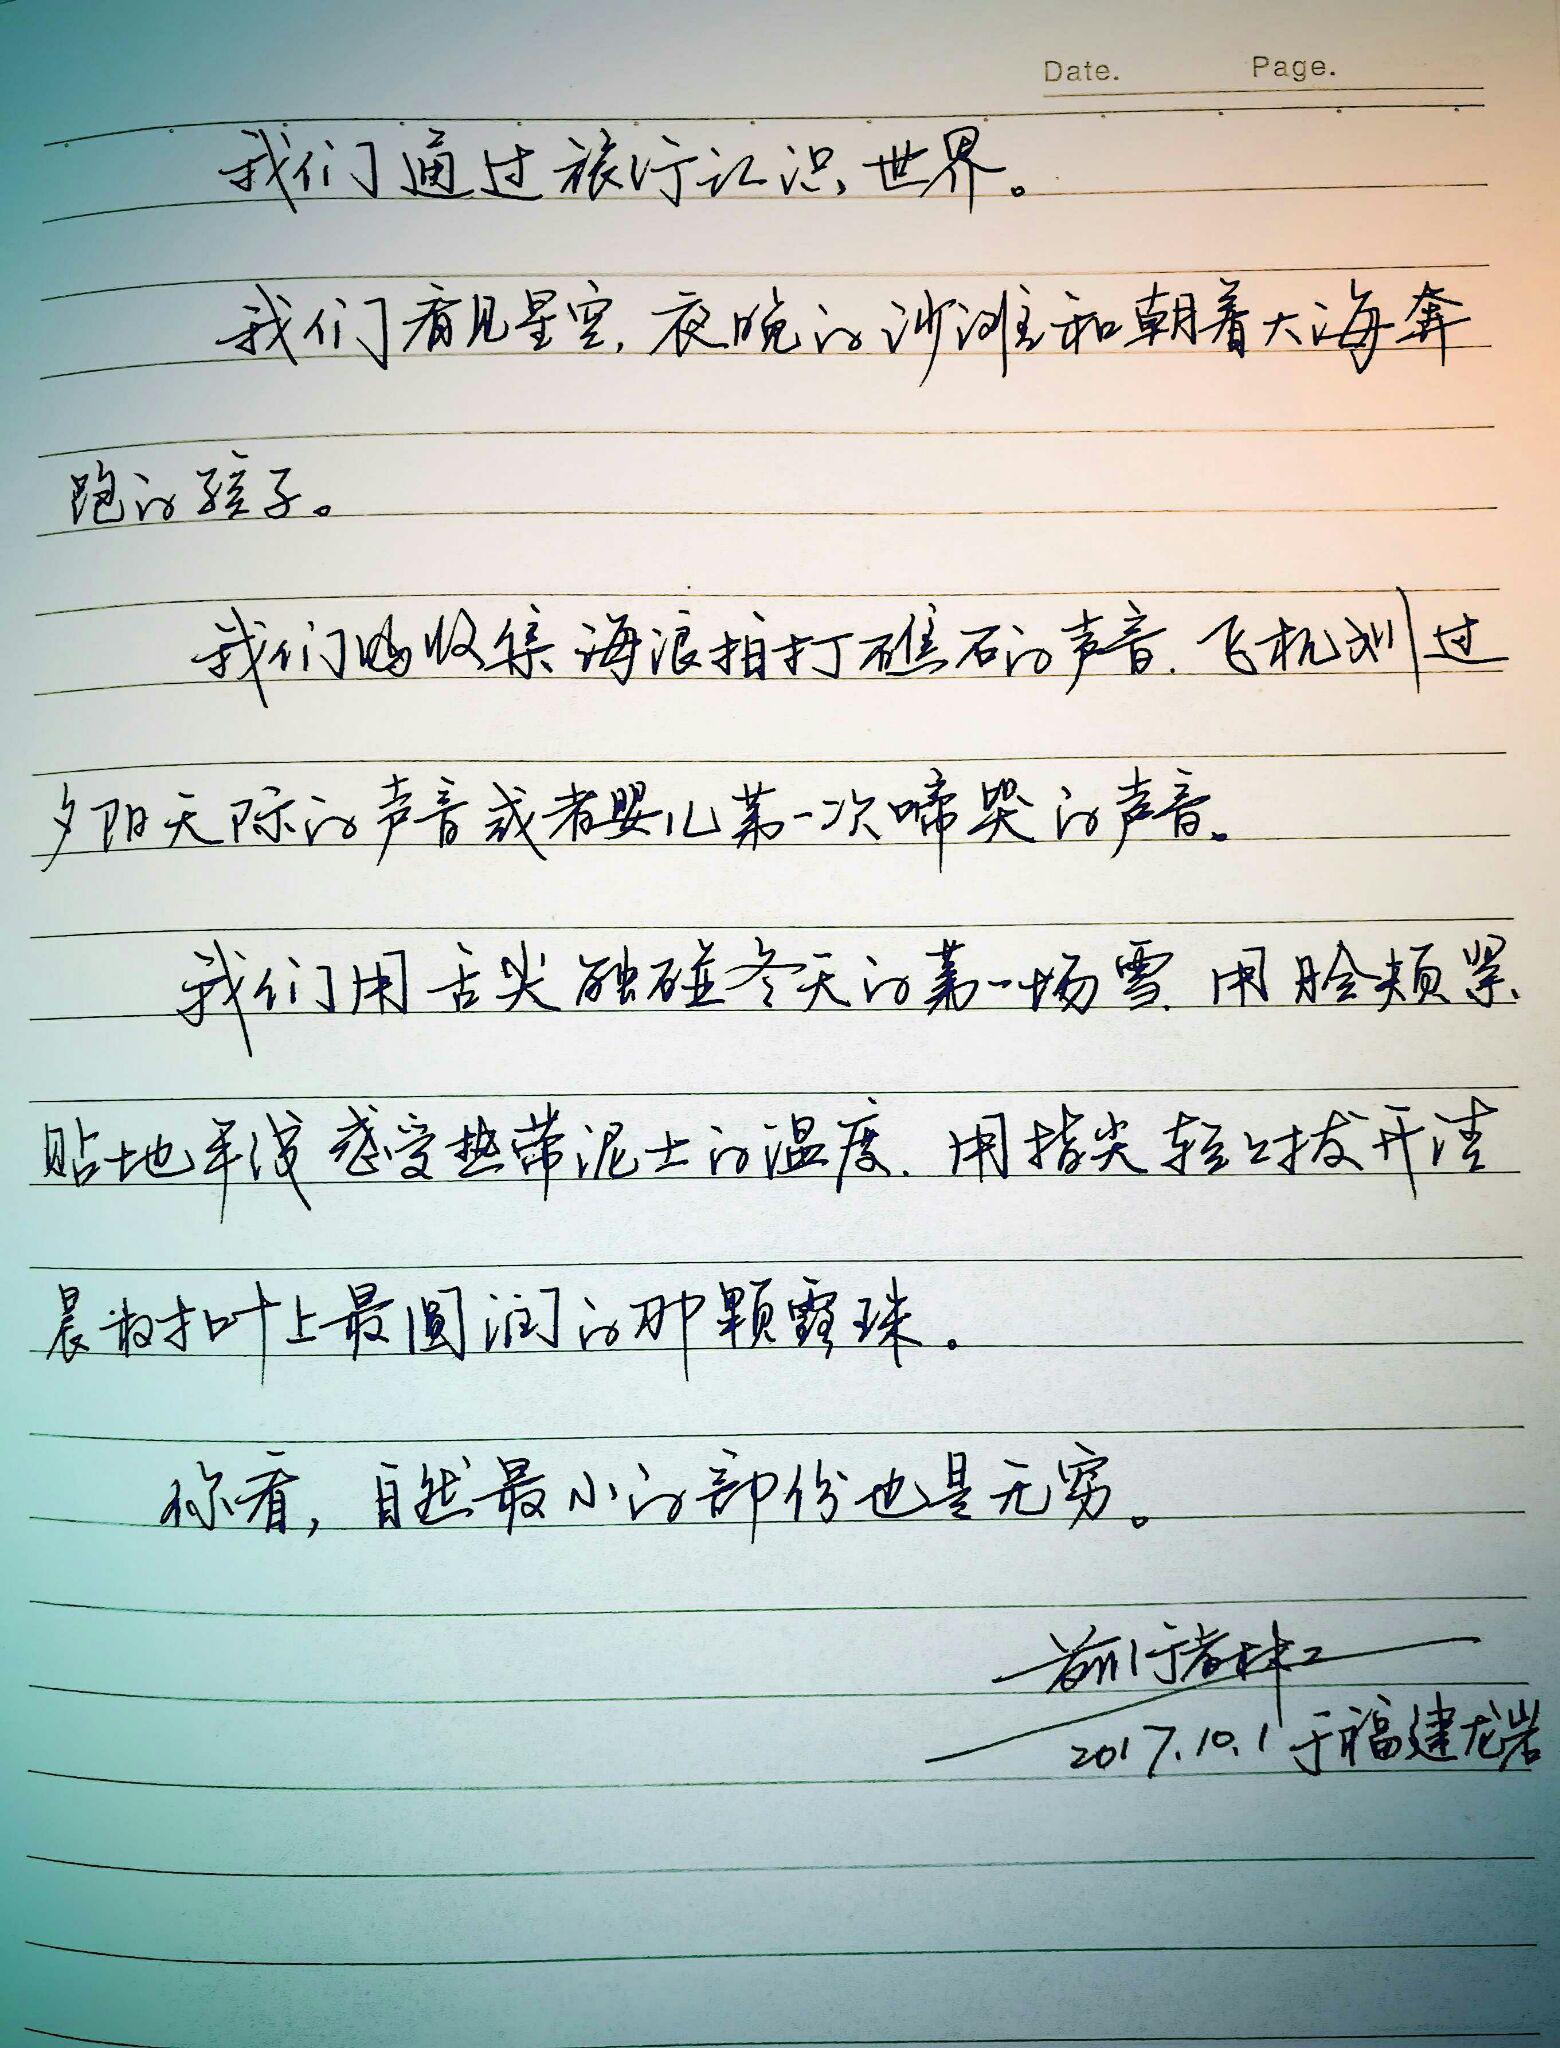 Date. Page.
我们通过旅行认识世界。
我们看见星空,夜晚的沙滩和朝着大海奔
跑的孩子。
我们收集海浪拍打礁石的声音.飞机划过
夕阳天际的声音或者婴儿第一次啼哭的声音。
我们用舌尖触碰冬天的第一场雪.用脸颊紧
贴地平线感受热带泥土的温度.用指尖轻轻拨开清
晨枝叶上最圆润的那颗露珠.
你看,自然最小的部份也是无穷。
前行者林
2017.10.1于福建龙岩